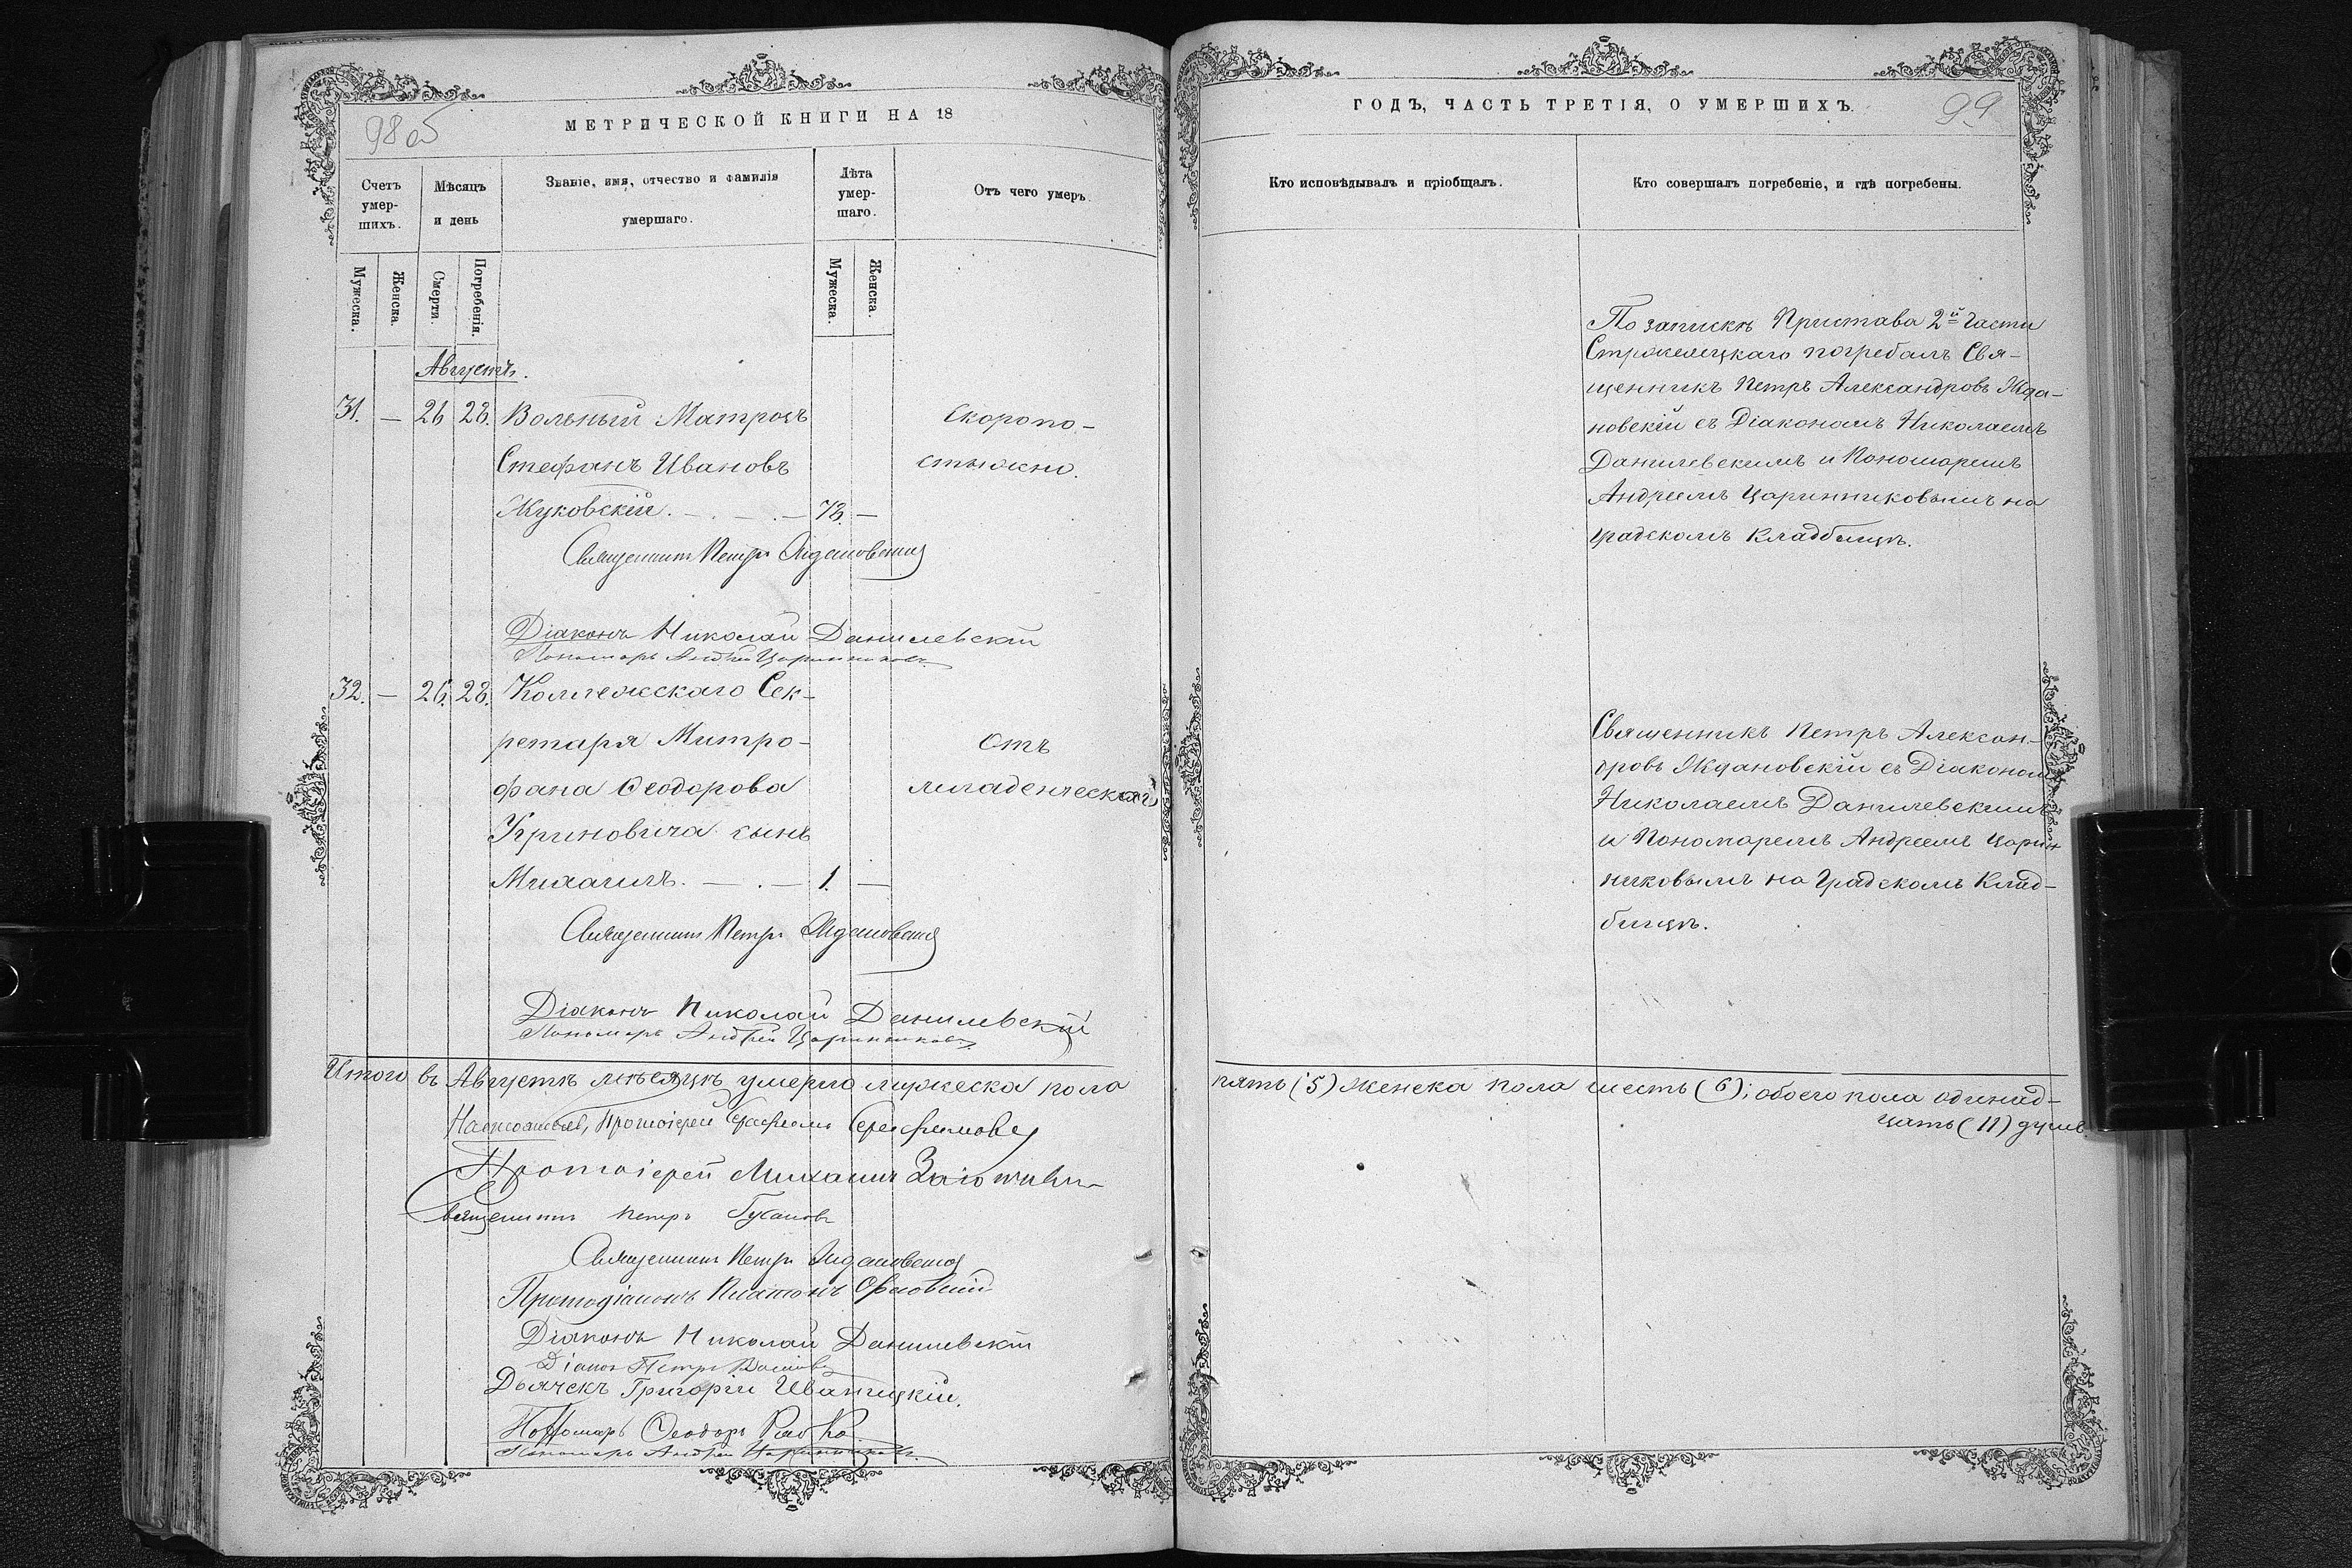 98 об
МЕТРИЧЕСКОЙ КНИГИ НА 18
Счетъ умер-шихъ.
Мѣсяцъ и день
Званіе, имя, отчество и фамилія умершаго.
Лѣта умер-шаго.
Отъ чего умеръ.
Мужеска.
Женска.
Смерти.
Погребенія.
Мужеска.
Женска.
Августъ.
31. — 26 28. Вольный Матросъ Скоропо-
Стефанъ Ивановъ стижно.
Жуковскій. — . — . — 73. —
Священникъ Петръ Ждановскій
Діаконъ Николай Данилевскій
Пономарь Андрей Царинниковъ
32. — 26. 28. Коллежскаго Сек-
ретаря Митро- Отъ
фана Ѳеодорова младенческой
Угриновича сынъ
Михаилъ. — . — 1. —
Священникъ Петръ Ждановскій
Діаконъ Николай Данилевскій
Пономарь Андрей Царинниковъ
Итого въ Августѣ мѣсяцѣ умерло мужеска пола
Протоіерей Серафимовъ
Протоіерей Михаилъ
Священникъ Петръ
Священникъ Петръ Ждановскій
Протодіаконъ Платонъ
Діаконъ Николай Данилевскій
Діаконъ Петръ
Дьячекъ Григорій Иваницкій.
Пономарь Ѳеодоръ
Пономарь Андрей Царинниковъ
ГОДЪ, ЧАСТЬ ТРЕТІЯ, О УМЕРШИХЪ.
99
Кто исповѣдывалъ и пріобщалъ.
Кто совершалъ погребеніе, и гдѣ погребены.
По запискѣ Пристава 2й Части
погребалъ Свя-
щенникъ Петръ Александровъ Жда-
новскій съ Діакономъ Николаемъ
Данилевскимъ и Пономаремъ
Андреемъ Царинниковымъ на
градскомъ Кладбищѣ.
Священникъ Петръ Алексан-
дровъ Ждановскій съ Діакономъ
Николаемъ Данилевскимъ
и Пономаремъ Андреемъ Царин
никовымъ на Градскомъ Клад-
бищѣ.
пять (5) женска пола шесть (6); обоего пола одинад-
цать (11) душъ